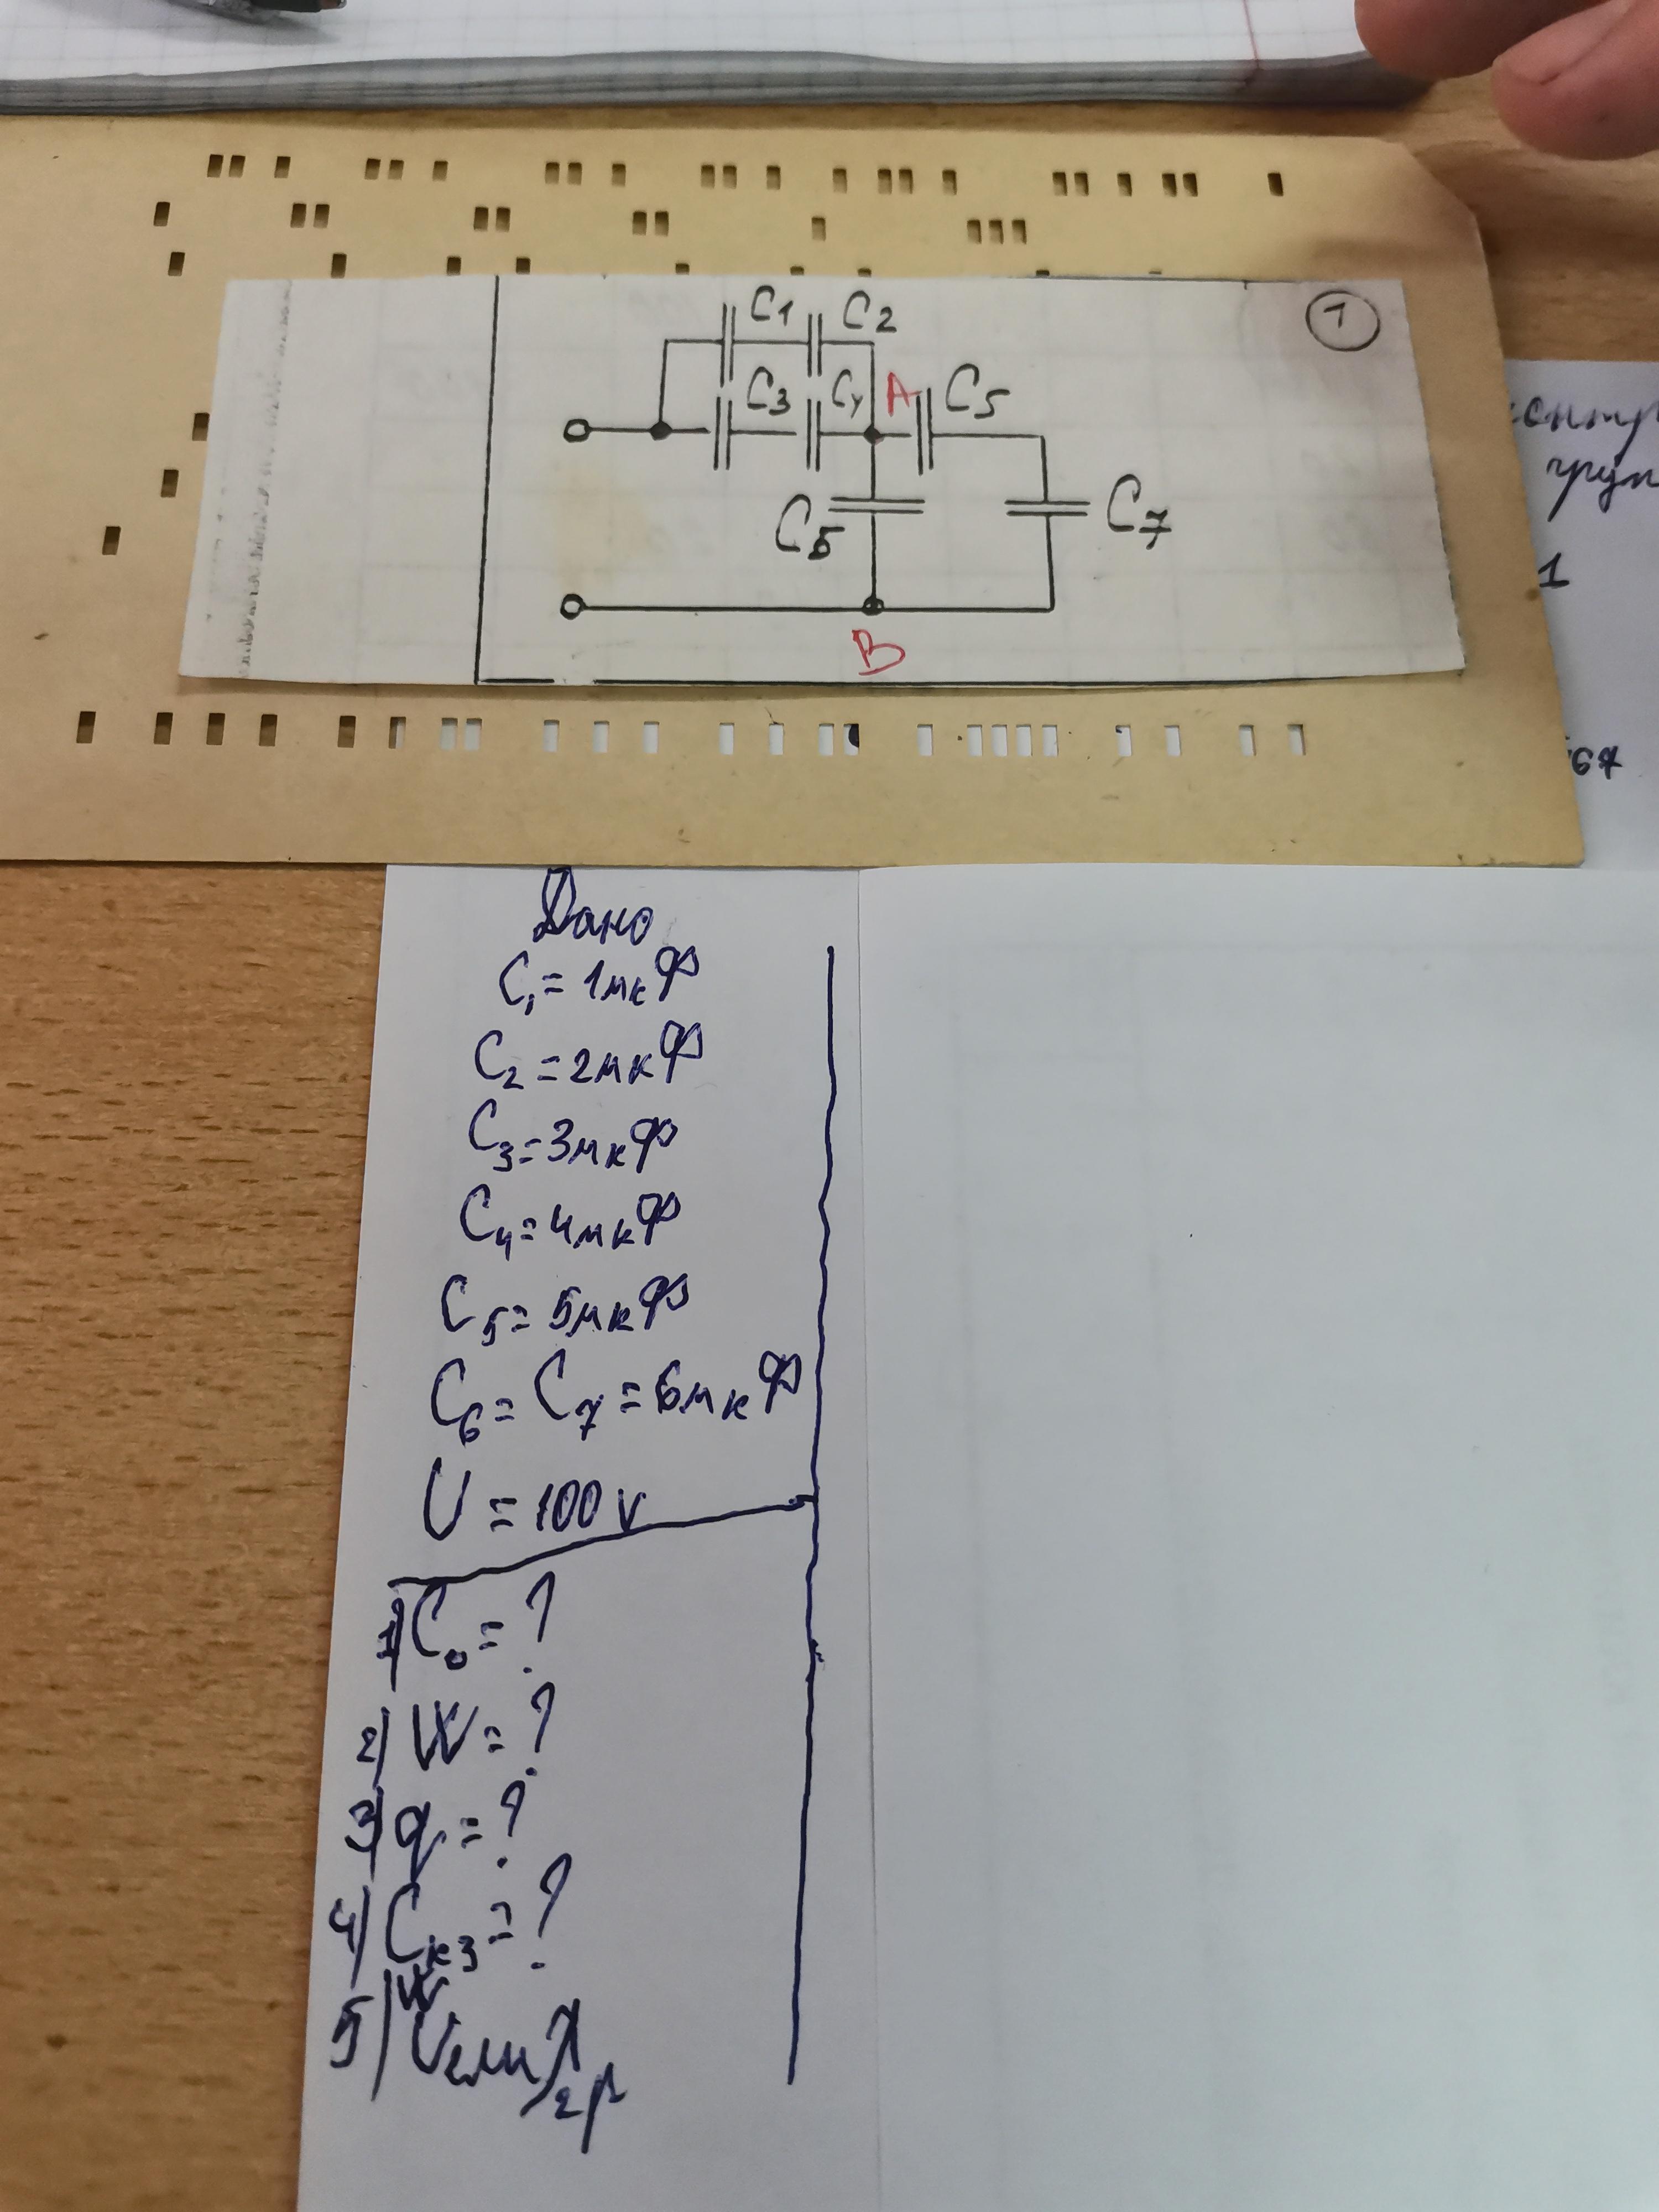 1
C1 C2
C3 C4 A C5
C5 C7
B
1
67
Дано
C₁ = 1мкФ
C₂ = 2мкФ
C₃ = 3мкФ
C₄ = 4мкФ
C₅ = 5мкФ
C₆ = C₇ = 6мкФ
U = 100 v
1) C₀ = ?
2) W = ?
3) q = ?
4) Cкз = ?
5) W